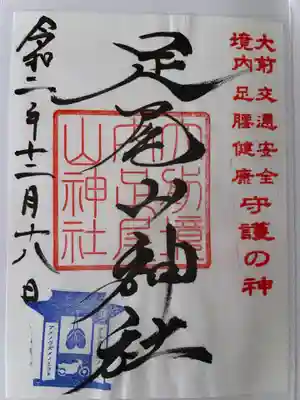 大前交通安全
境内足腰健康
守護の神
足尾山神社
山神社
令和二年十二月十八日